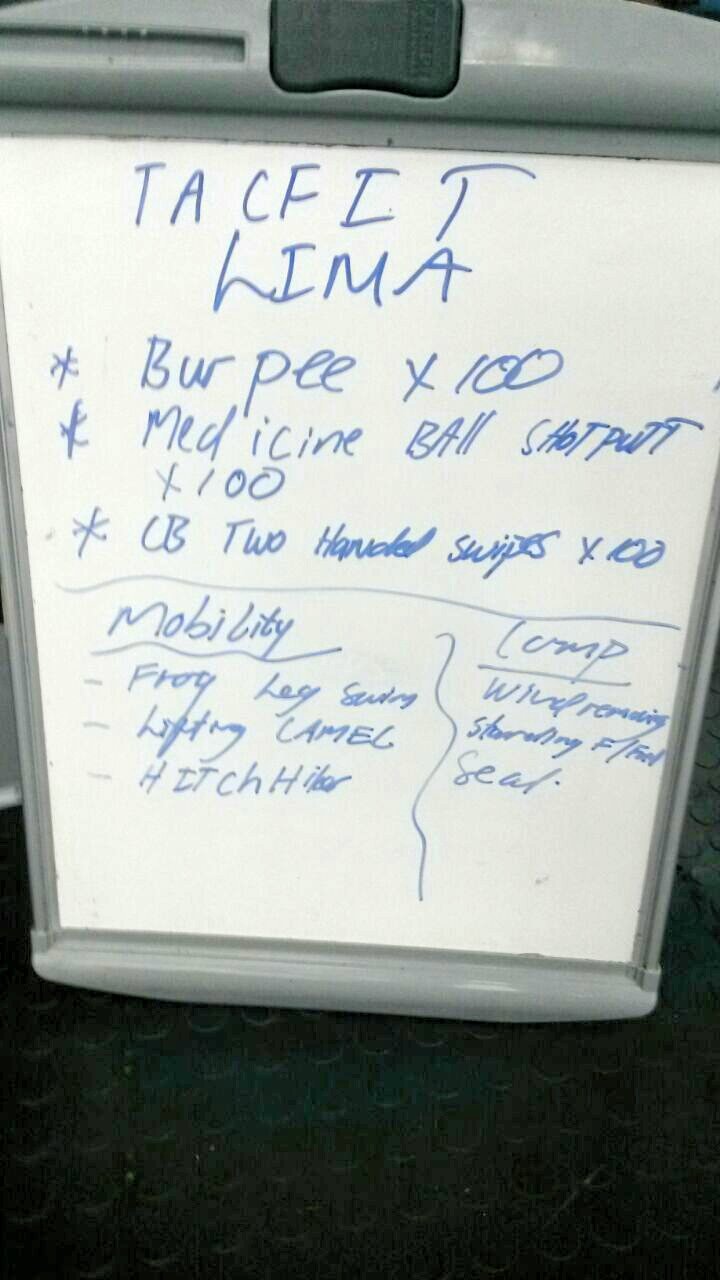 TACFIT
LIMA
* Burpee x 100
* Medicine BAll SHOTPUTT
x 100
* CB Two Handed swipes x 100
Mobility
- Frog Leg Swim
- Lifting CAMEL
- HITCHHiker
Comp
Wind removing
Standing F/
Seal.